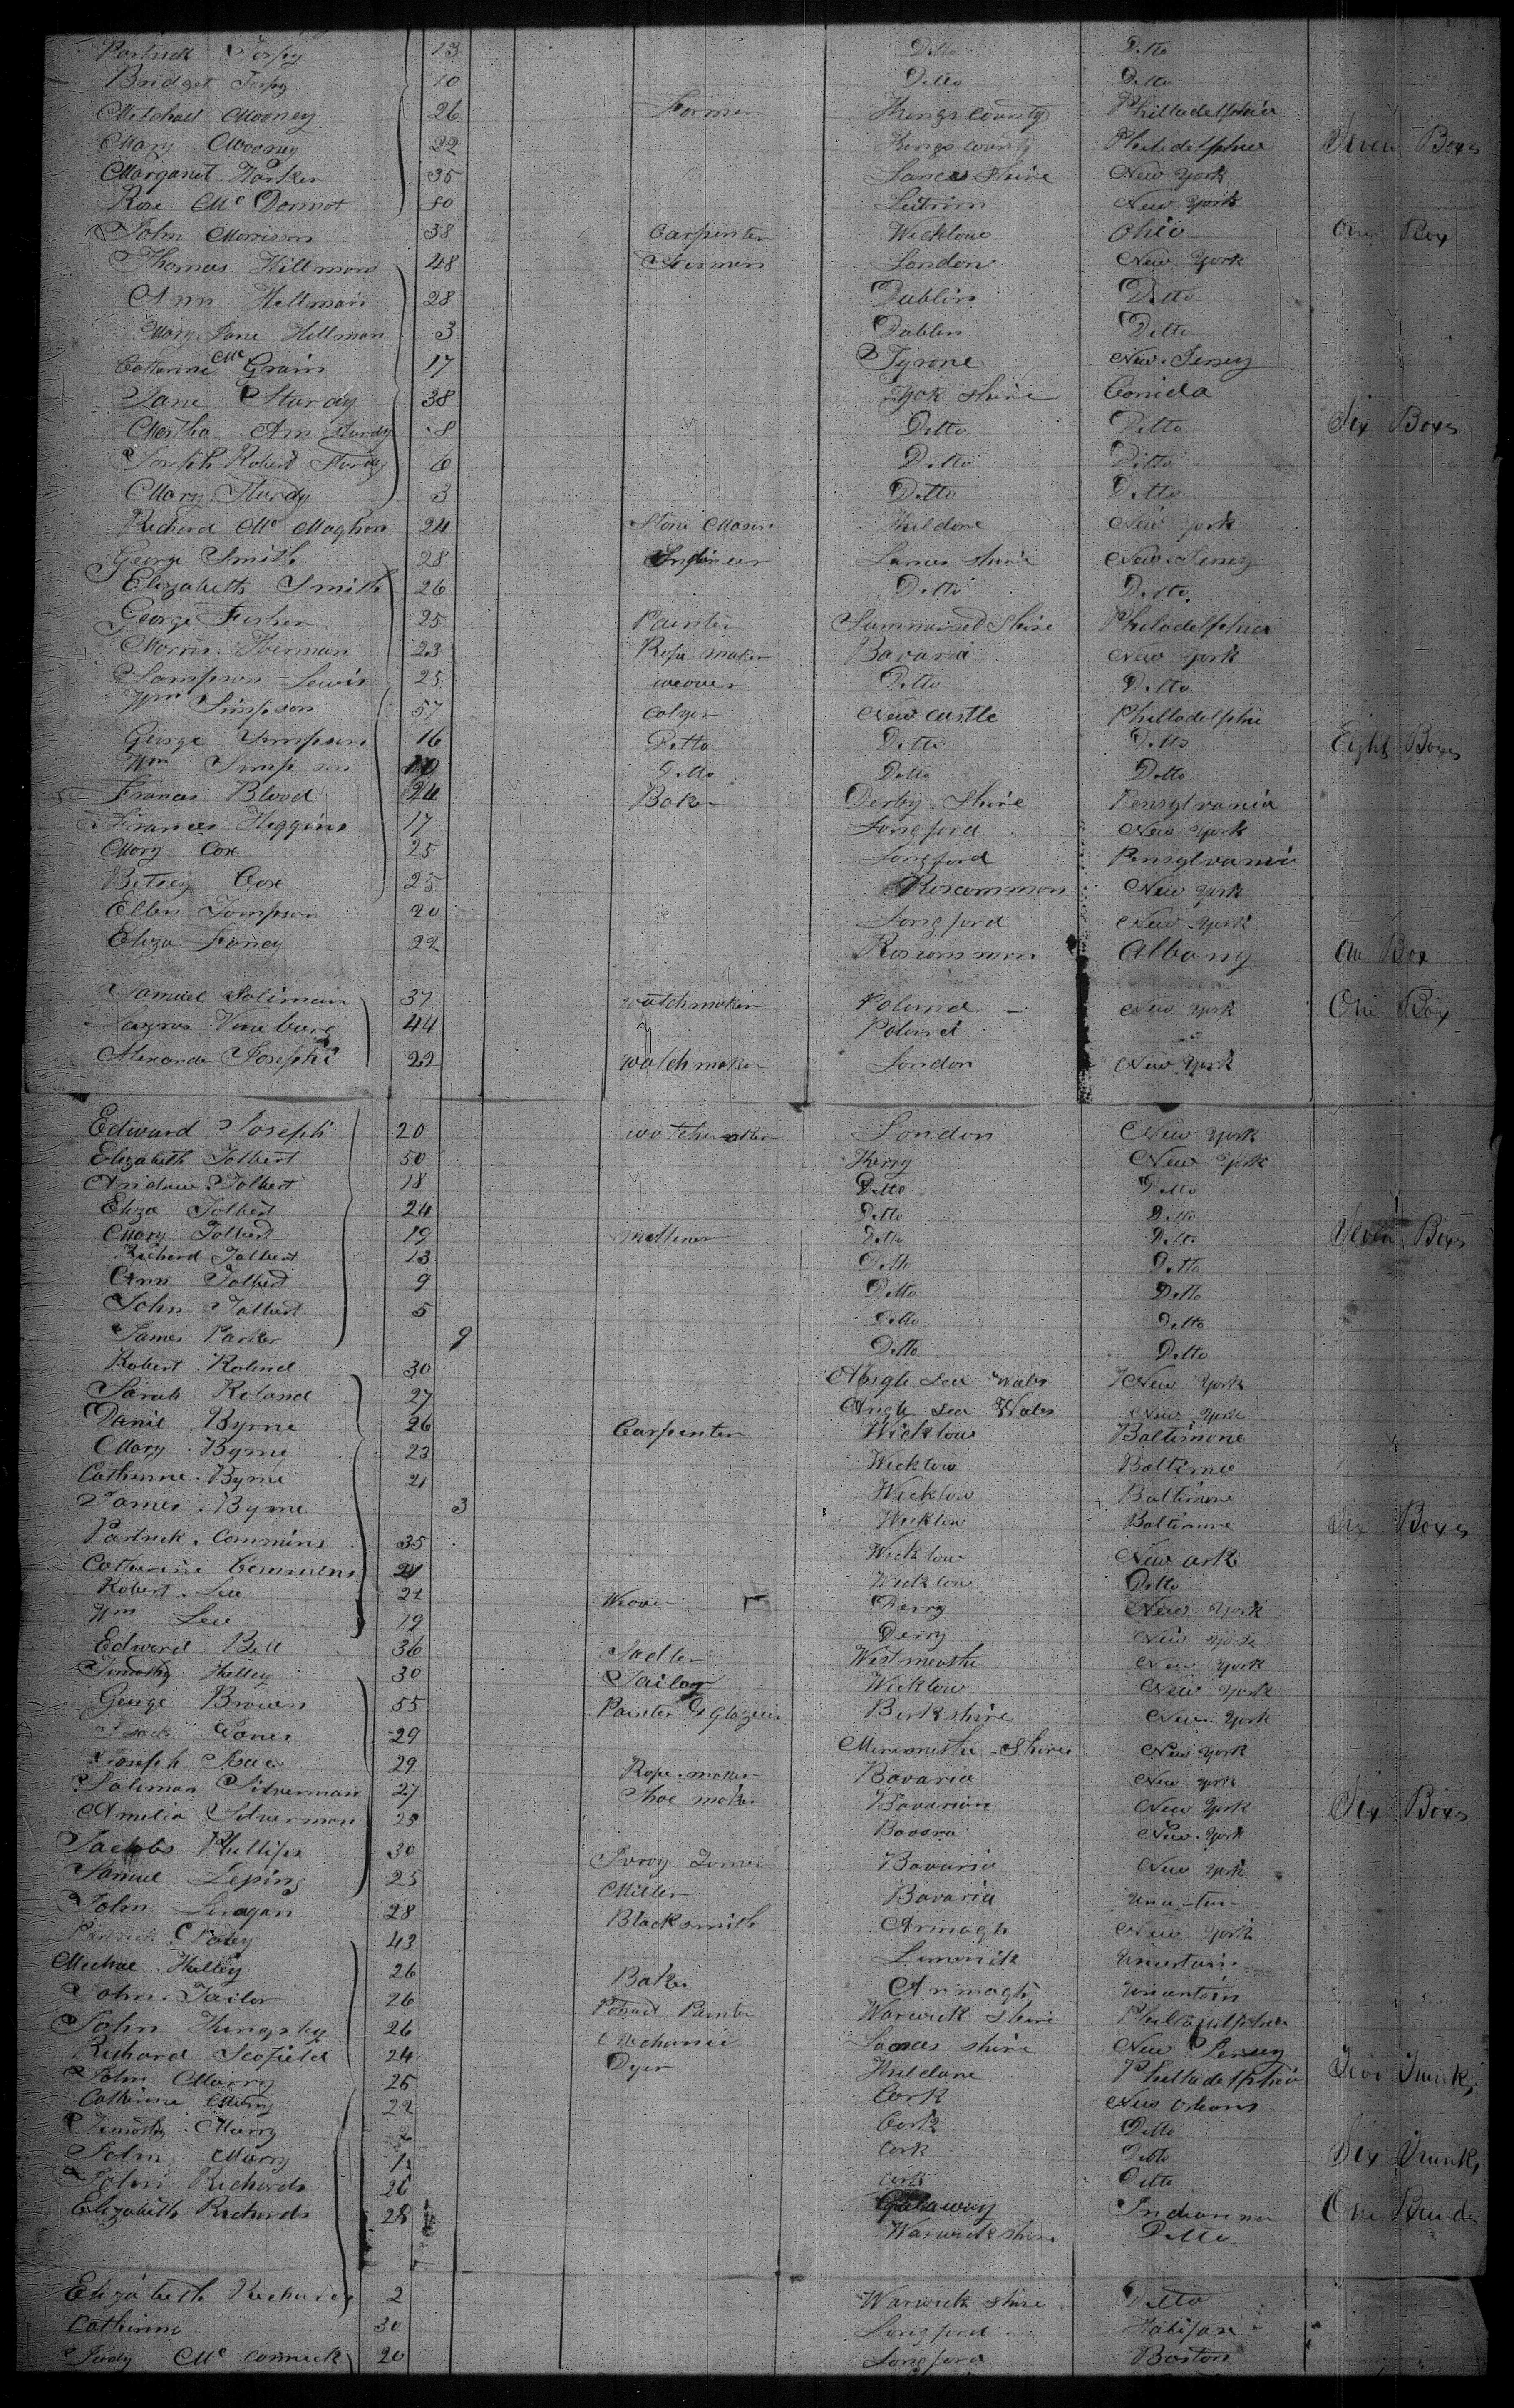 Patrick Torpy 13 Ditto Ditto
Bridget Torpy 10 Ditto Ditto
Michael Mooney 26 Farmer Kings County Philladelphia
Mary Mooney 22 Kings County Philidelphia Seven Boxes
Margaret Harker 35 Lances Shire New York
Rose Mc Dormot 50 Leitrim New York
John Morrison 38 Carpenter Wicklow Ohio One Box
Thomas Hillman 48 London New York
Ann Hillman 28 Dublin Ditto
Mary Jane Hillman 3 Dublin Ditto
Catherine Mc Grain 17 Tyrone New Jersey
Jane Sturdy 38 York Shire Conida
Martha Ann Sturdy 8 Ditto Ditto Six Boxes
Joseph Robert Sturdy 6 Ditto Ditto
Mary Sturdy 3 Ditto Ditto
Richard Mc Maghon 24 Stone Mason Kildare New York
George Smith 28 Engineer Lances Shire New Jersey
Elizabeth Smith 26 Ditto Ditto
George Fisher 25 Painter Summerset Shire Philadelphia
Morris Herman 23 Rope maker Bavaria New York
Sampson Lewis 25 weaver Ditto Ditto
Wm Simpson 57 Colyer New Castle Philladelphia
George Simpson 16 Ditto Ditto Ditto Eight Boxes
Wm Simpson Ditto Ditto Ditto
Frances Blood 24 Baker Derby Shire Pensylvania
Frances Higgins 17 Longford New York
Mary Cox 25 Longford Pensylvania
Betsey Cox 25 Roscommon New York
Ellen Tompson 20 Longford New York
Eliza Fancy 22 Roscommon Albany One Box
Samuel Soliman 37 watchmaker Poland New York One Box
44 Poland
Alexander Josephi 22 watchmaker London New York
Edward Joseph 20 watchmaker London New York
Elizabeth Tolbert 50 Kerry New York
Andrew Tolbert 18 Ditto Ditto
Eliza Tolbert 24 Ditto Ditto
Mary Tolbert 19 Ditto Ditto Seven Boxes
Richard Tolbert 13 Ditto Ditto
Ann Tolbert 9 Ditto Ditto
John Tolbert 5 Ditto Ditto
James Parker 9 Ditto Ditto
Robert Roland 30 Angle Sea Wales New York
Sarah Roland 27 Angle Sea Wales New York
Daniel Byrne 26 Carpenter Wicklow Baltimore
Mary Byrne 23 Wicklow Baltimore
Catherine Byrne 21 Wicklow Baltimore
James Byrne 3 Wicklow Baltimore Six Boxes
Patrick Commins 35 Wicklow New ark
Catherine Commins 21 Wicklow Ditto
Robert Lee 21 Weaver Derry New York
Wm Lee 19 Derry New York
Edward Bell 36 Sadler Westmeath New York
Timothy Kelley 30 Tailor Wicklow New York
George Brown 55 Painter & Glazier Birkshire New York
Isack Jones 29 Shire New York
Joseph Isac 29 Rope maker Bavaria New York
Soliman Silverman 27 Shoe maker Bavarian New York
Amelia Silverman 25 Bavara New York Six Boxes
Jacobs Phillips 30 Ivory Turner Bavaria New York
Samuel Leping 25 Miller Bavaria
John Linagan 28 Blacksmith Armagh New York
Patrick 43 Limerick
Michael Kelley 26 Baker Armagh
John Tailor 26 Warwick Shire Philladelphia
John 26 Mechanic Lances shire New Jersey
Richard Scofield 24 Dyer Kildare Philladelphia Trunks
John Murry 25 Cork New Orleans
Catherine Murry 22 Cork Ditto
Timothy Murry 2 Cork Ditto Six Trunks
John Murry 1 Cork Ditto
John Richards 26 Galaway Indianna One
Elizabeth Richards 28 Warwick shire Ditto
Elizabeth Richards 2 Warwick shire Ditto
Catherine 30 Longford Halifax
Judy Mc Cormick 20 Longford Boston